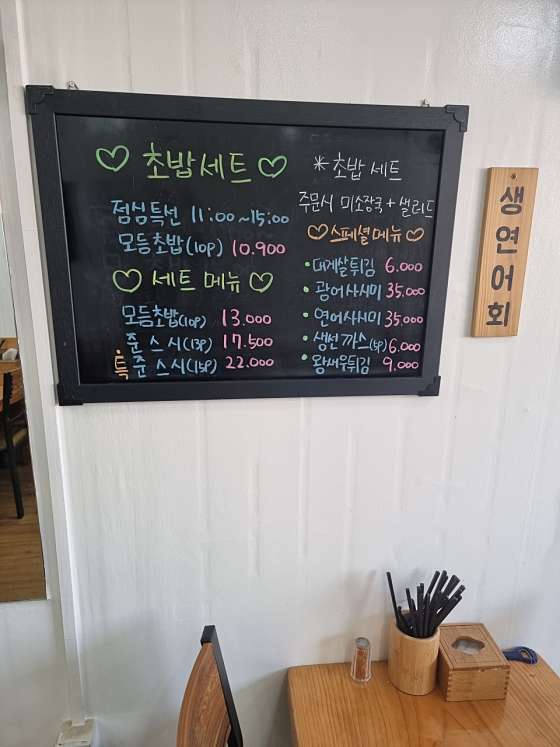 초밥세트
점심특선 11:00~15:00
모듬초밥(10P) 10.900
세트 메뉴
모듬초밥(10P) 13.000
준 스시(13P) 17.500
특 준 스시(15P) 22.000
*초밥 세트
주문시 미소장국+샐러드
스페셜 메뉴
대게살튀김 6.000
광어사시미 35.000
연어사시미 35.000
생선까스(5P) 6.000
왕새우튀김 9.000
생연어회